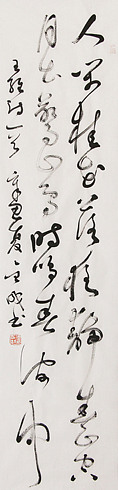 人闲桂花落夜静春山空
月出惊山鸟时鸣春涧中
王维诗一首 辛丑夏